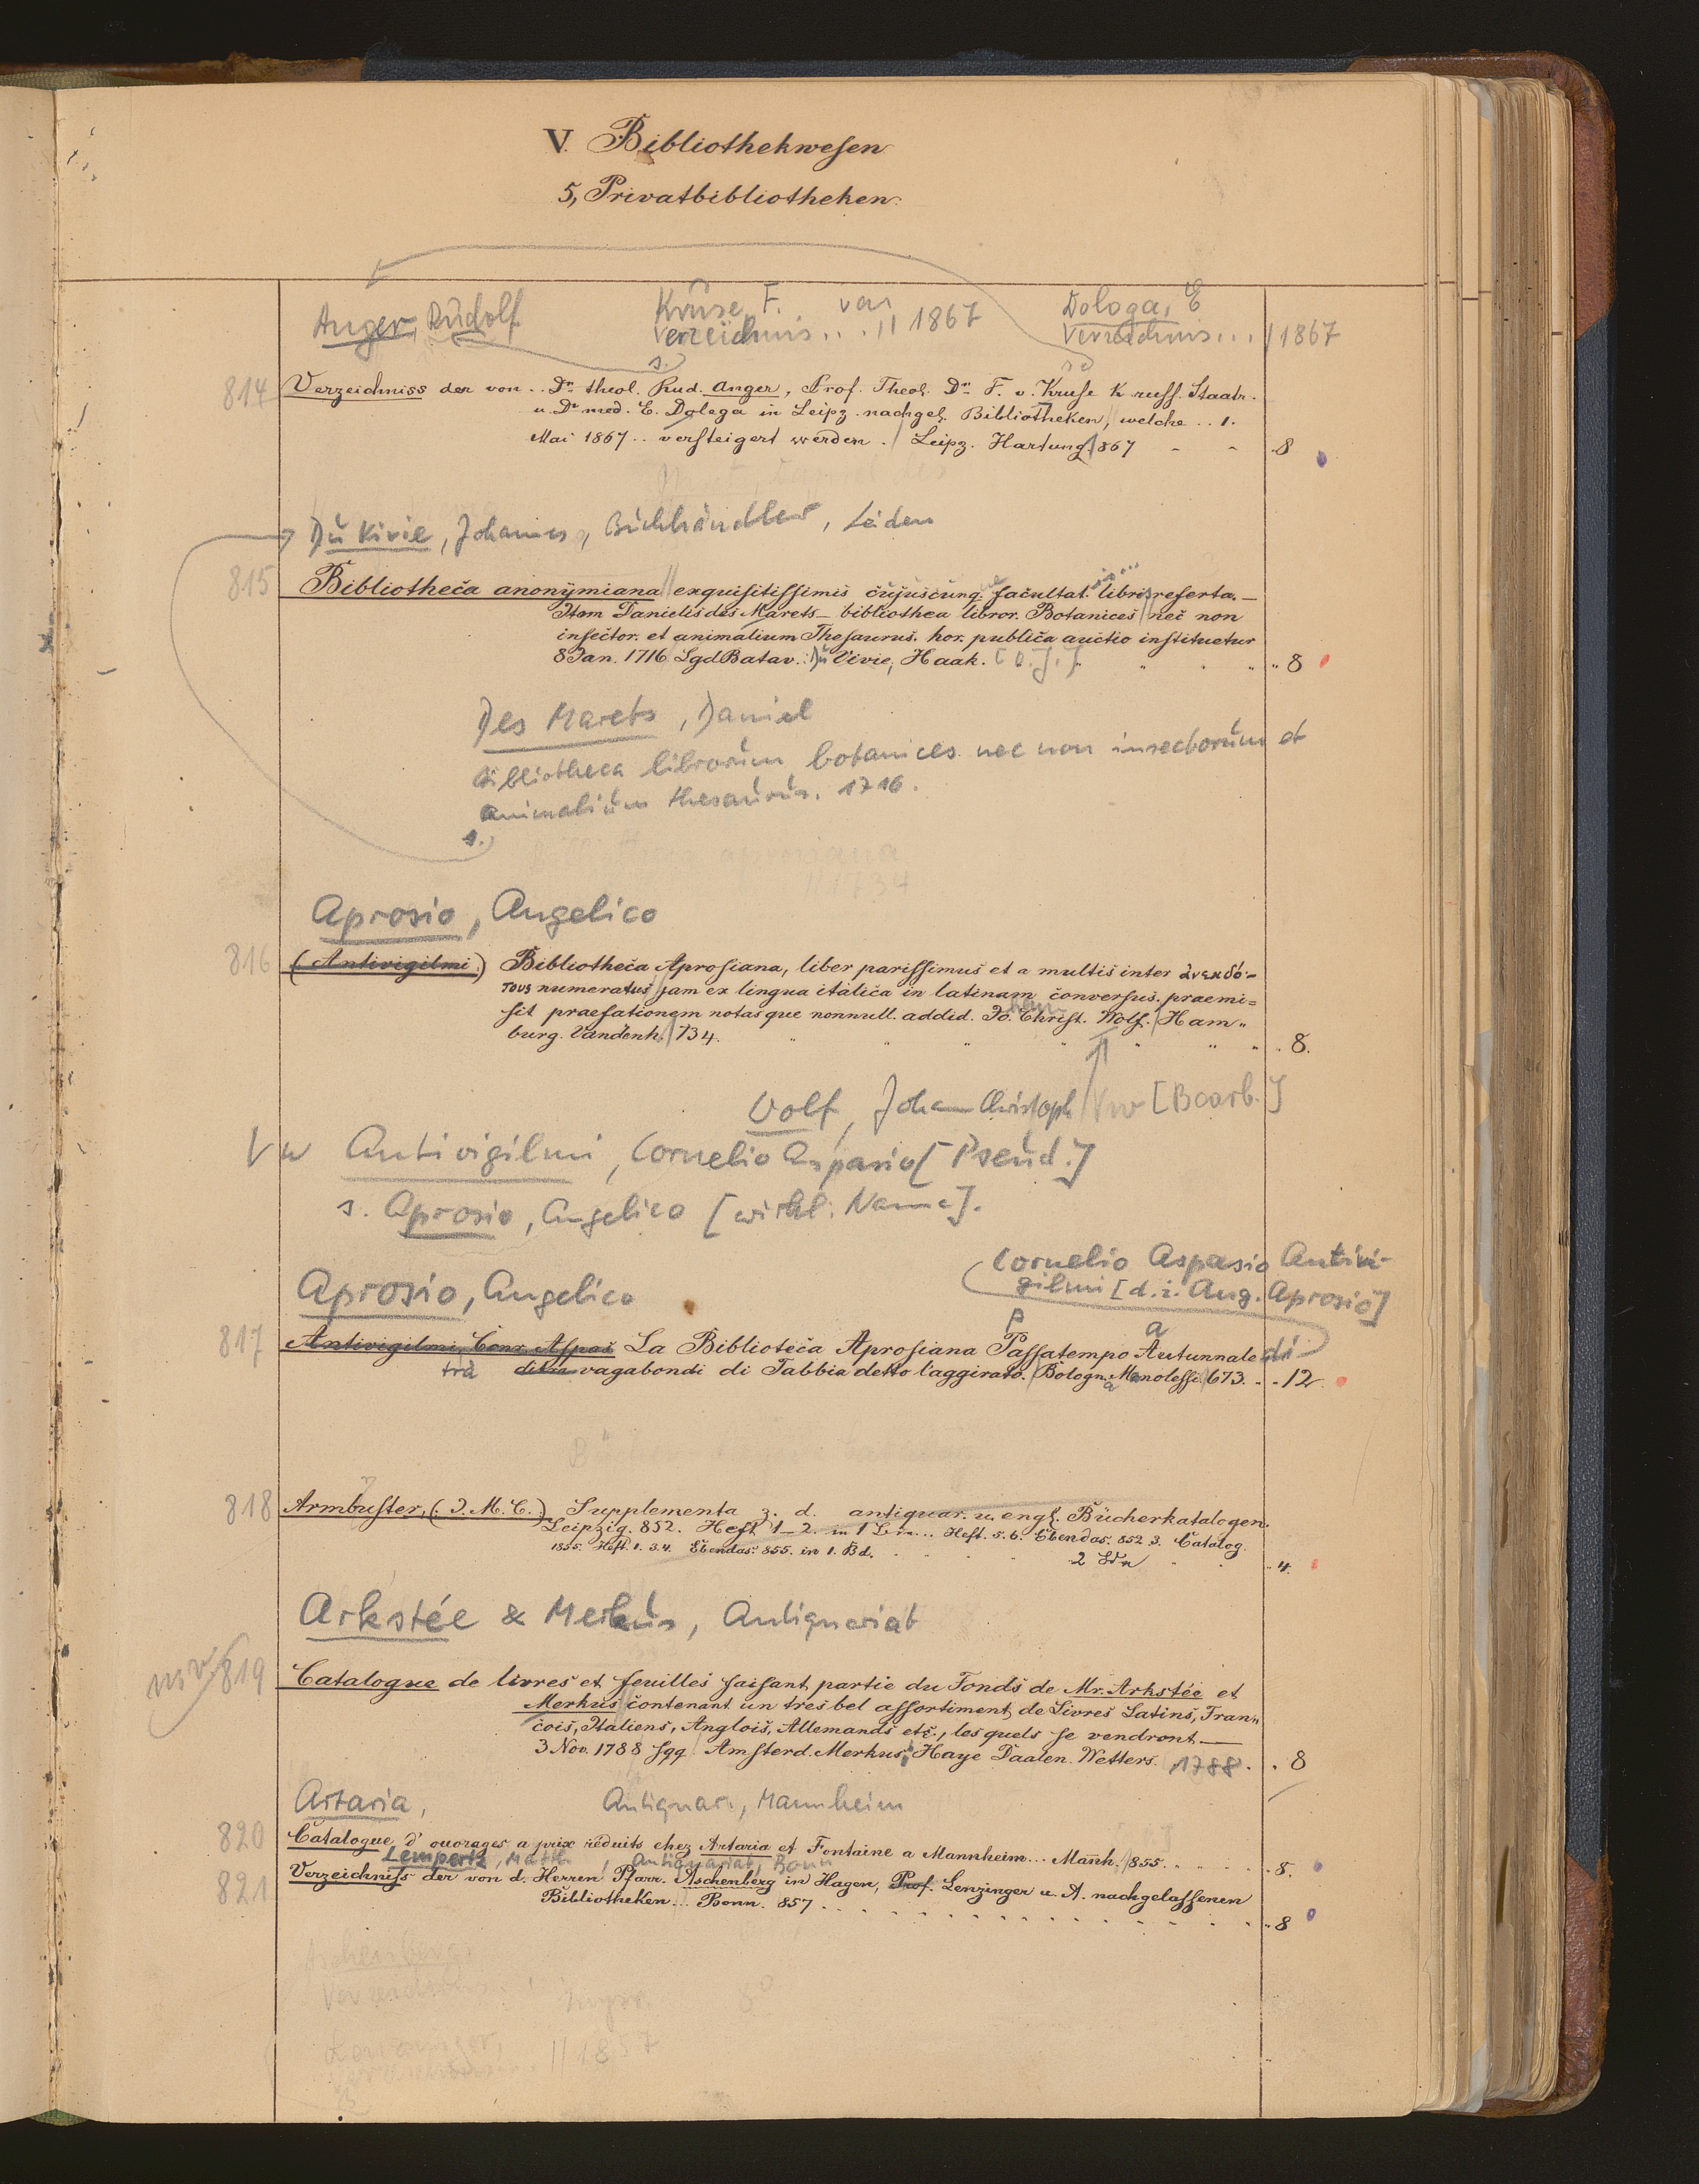 V. Bibliothekwesen
5, Privatbibliotheken.
Anger, Rudolf
Kruse, F. von
Verzeichnis... || 1867
Dologa, E
Verzeichnis... | 1867
s.
814 Verzeichniss der von .. Dr. theol. Rud. Anger, Prof. Theol. Dr. F. v. Kruse K russ. Staatsr.
u. Dr med. E. Dolega in Leipz. nachgel. Bibliotheken, welche .. 1.
Mai 1867 .. versteigert werden. | Leipz. Hartung 867 8
Du Vivie, Johannes, Buchhändler, Leiden
815 Bibliotheca anonymiana || exquisitissimis cujuscunque facultat. libris referta.—
Item Danielis des Marets bibliothea libror. Botanices || nec non
insector. et animalium Thesaurus. hor. publica auctio instituetur
8 Jan. 1716 LgdBatav. Du Vivie, Haak. [o. J.] 8
Des Marets, Daniel
Bibliotheca librorum botanices nec non insectorum et
animalium thesaurus. 1716.
s.
Aprosio, Angelico
816 (Antivigilmi) Bibliotheca Aprosiana, liber parissimus et a multis inter ἀνεκδό-
τους numeratus jam ex lingua italica in latinam conversus. praemi=
sit praefationem notasque nonnull. addid. Jo. Christ. Wolf. | Ham-
burg. Vandenh. | 734. 8.
Wolf, Johann Christoph | Vw [Bearb.]
Vw Antivigilmi, Cornelio Aspasio [Pseud.]
s. Aprosio, Angelico [wirkl. Name].
Cornelio Aspasio Antivi-
gilmi [d. i. Ang. Aprosio]
Aprosio, Angelico
p a
817 Antivigilmi, Corn. Aspas. La Biblioteca Aprosiana Passatempo Autunnale di
tra vagabondi di Tabbia detto l'aggirato. | Bologn. Manolessi. | 673. 12
a
818 Armbuster, (J. M. C.) Supplementa z. d. antiquar. u. engl. Bücherkatalogen.
Leipzig. 852. Heft 1–2. in 1 Heft. 5. 6. Ebendas. 852 3. Catalog.
1855. Heft. 1. 3. 4. Ebendas. 855. in 1. Bd.
2 4.
Arkstée & Merkus, Antiquariat
819 Catalogue de livres et feuilles faisant partie du Fonds de Mr. Arkstée et
Merkus || contenant un tres bel assortiment de Livres Latins, Fran-
cois, Italiens, Anglois, Allemands etc., les quels se vendront —
3 Nov. 1788 sqq. | Amsterd. Merkus, Haye Daalen Wetters. 1788. 8
Artaria, Antiquar., Mannheim
820 Catalogue d' ouvrages a prix réduits chez Artaria et Fontaine a Mannheim... Manh. 855. 8.
Lempertz, Math, Antiquariat, Bonn
821 Verzeichniss der von d. Herren Pfarr. Aschenberg in Hagen, Prof. Lenzinger u. A. nachgelassenen
Bibliotheken... Bonn. 857 8
Aschenberg,
|| 1857